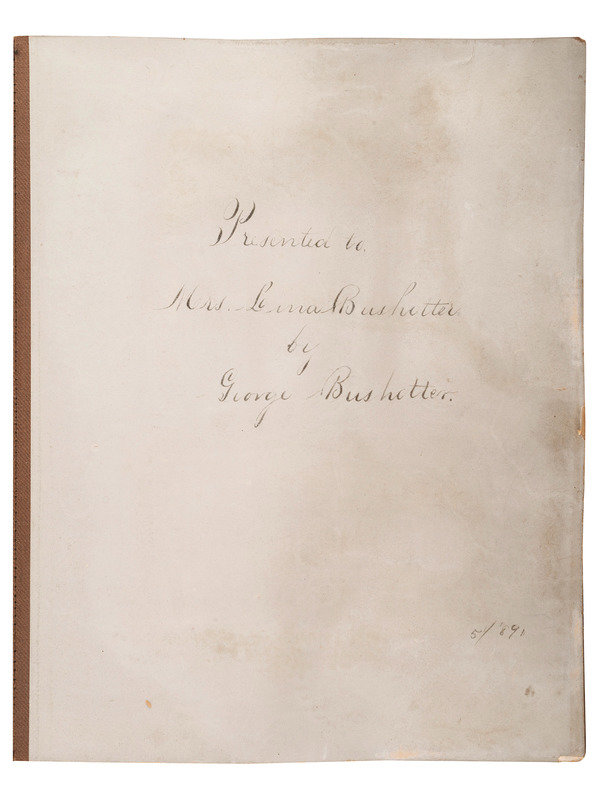 Presented to.
Mrs. Lena Bushotter
by
George Bushotter.
5/'89,